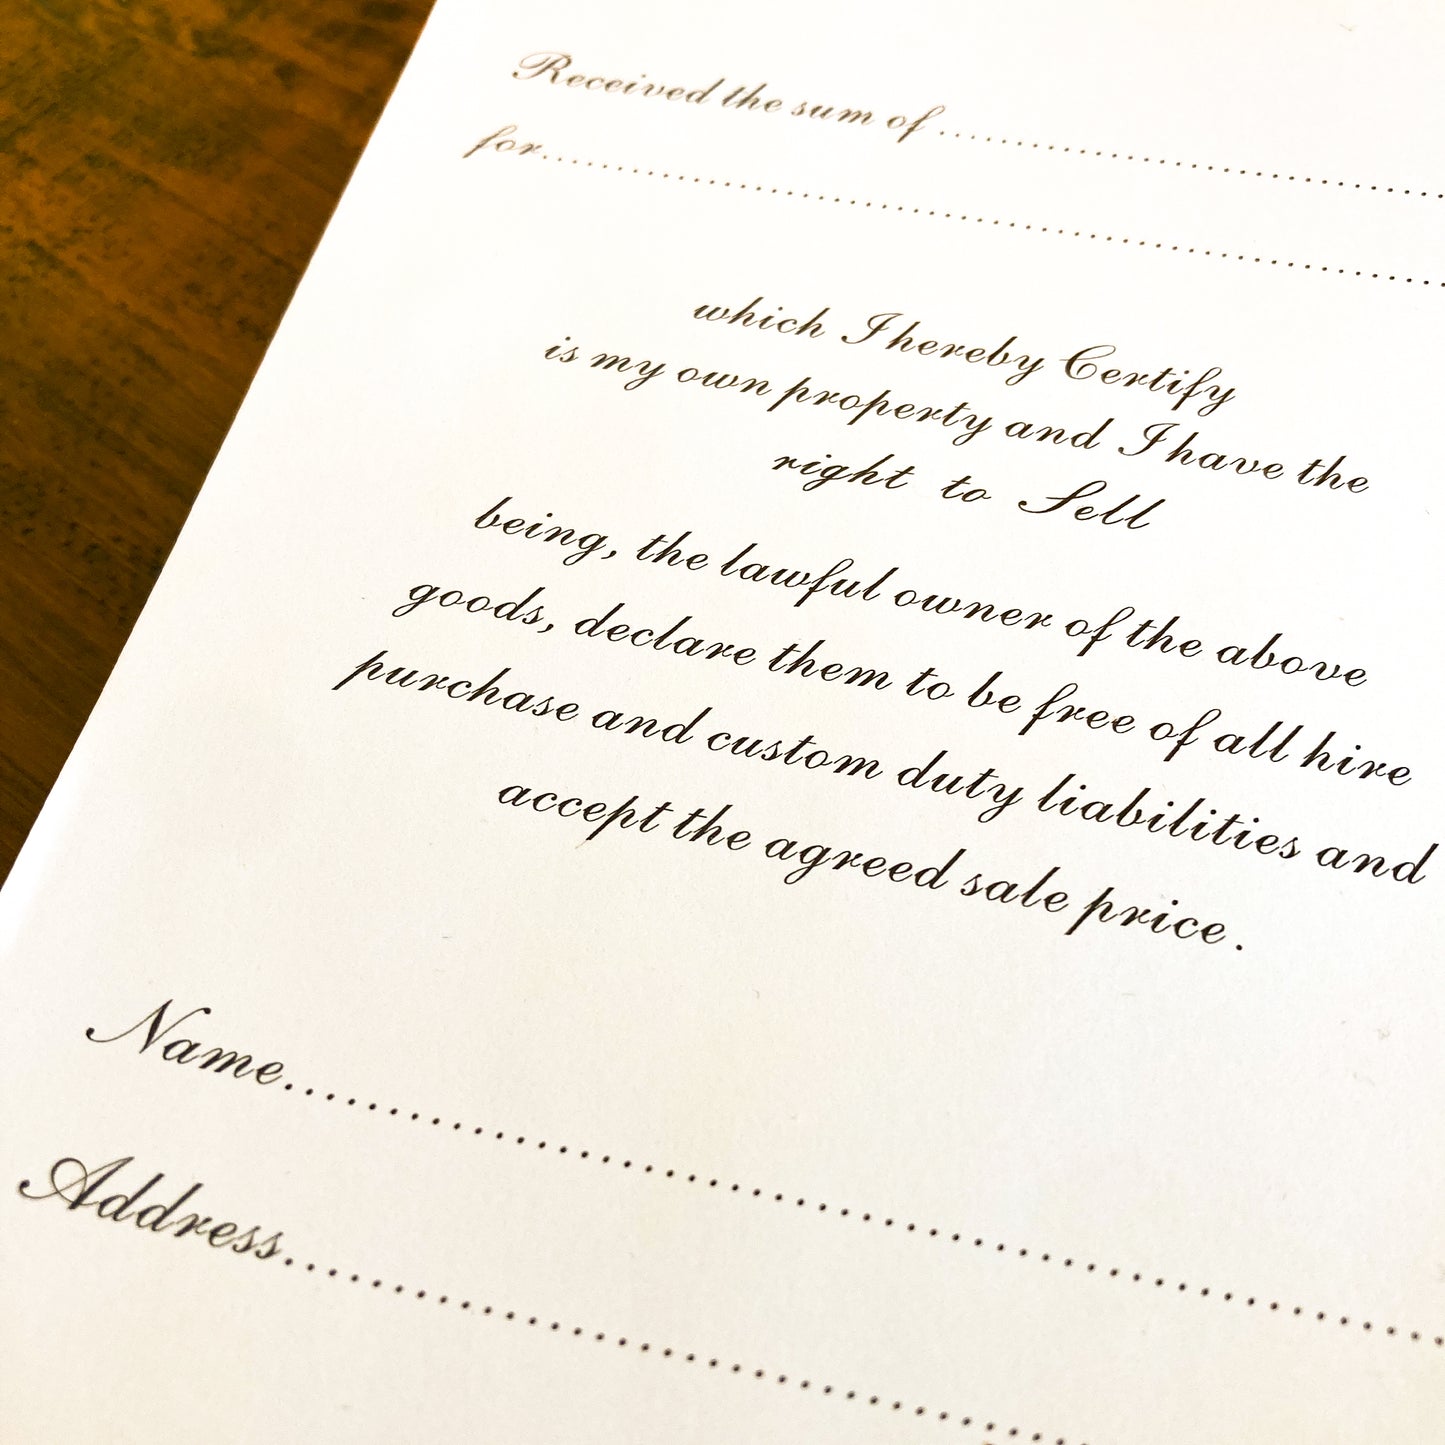 Received the sum of ........................................
for..................................................
which I hereby Certify
is my own property and I have the
right to Sell
being, the lawful owner of the above
goods, declare them to be free of all hire
purchase and custom duty liabilities and
accept the agreed sale price.
Name..................................................
Address..................................................